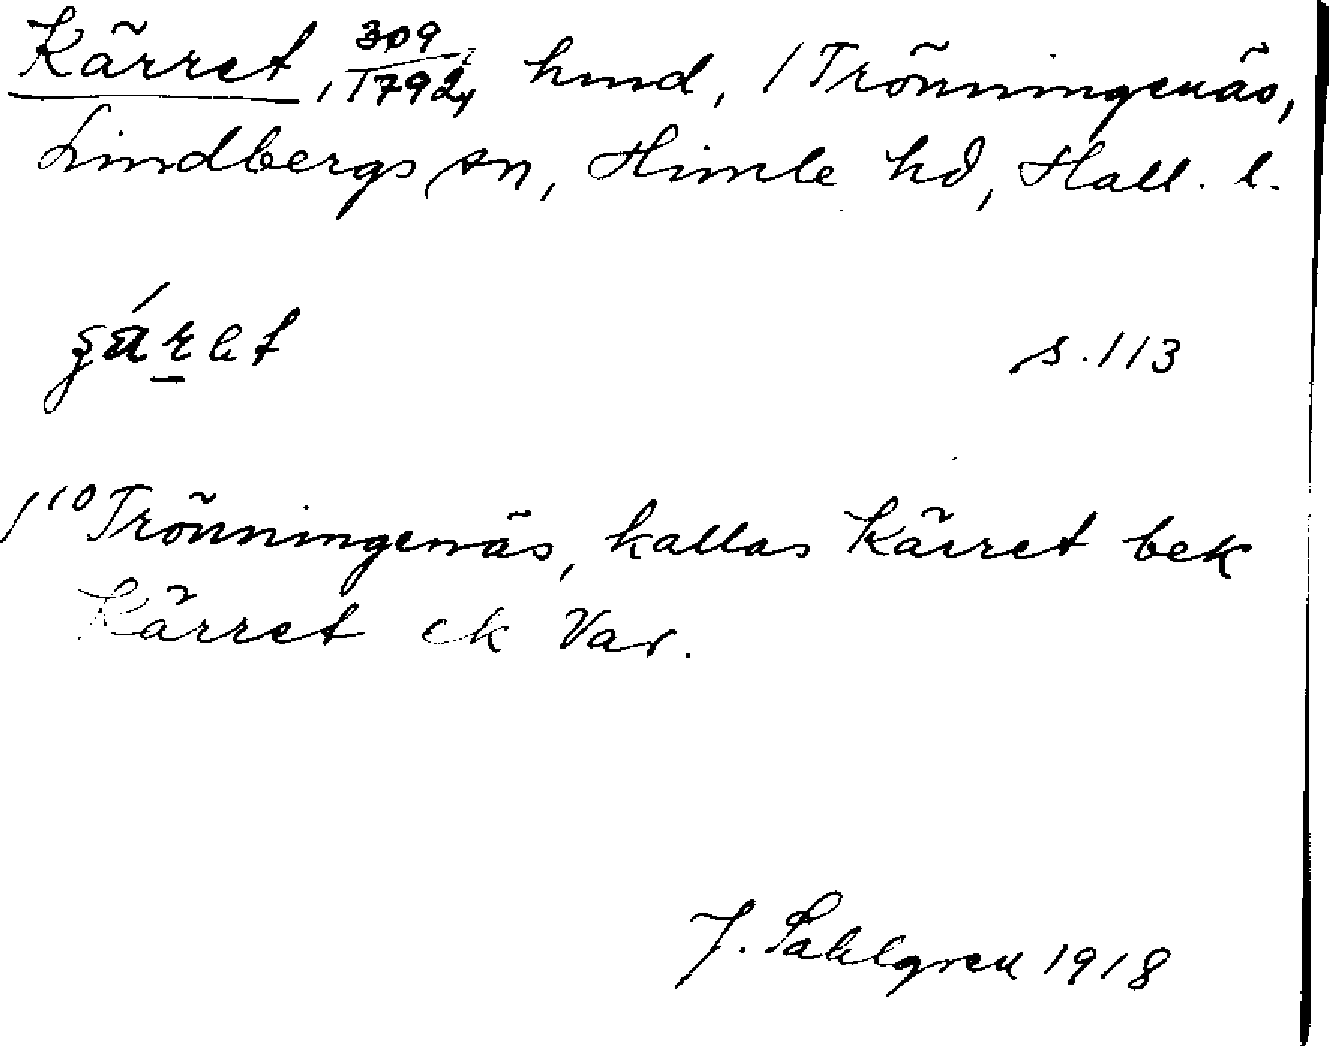 Kärret, 309/1792, hmd, 1 Trönningenäs,
Lindbergs sn, Himle hd, Hall. l.
s. 113
1 10 Trönningenäs, kallas Kärret bek
Kärret ek Var.
J. Sahlgren 1918